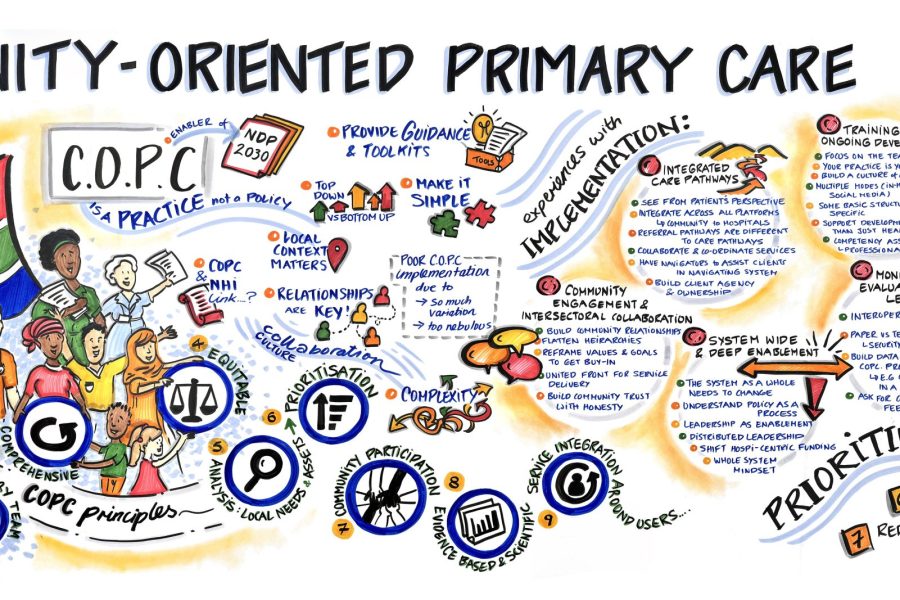 NITY-ORIENTED PRIMARY CARE
C.O.P.C
ENABLER of
NDP
2030
IS A PRACTICE not a POLICY
PROVIDE GUIDANCE
& TOOLKITS
TOOLS
TOP
DOWN
VS BOTTOM UP
MAKE IT
SIMPLE
LOCAL
CONTEXT
MATTERS
COPC
&
NHI
Link...?
RELATIONSHIPS
ARE KEY!
POOR C.O.P.C
implementation
due to
→ so much
variation
→ too nebulous
Collaboration
CULTURE
COMPLEXITY
COMPREHENSIVE
BY TEAM
COPC principles~
4 EQUITABLE
5 ANALYSIS: LOCAL NEEDS & ASSETS
6 PRIORITISATION
7 COMMUNITY PARTICIPATION
8
EVIDENCE BASED & SCIENTIFIC
9
SERVICE INTEGRATION AROUND USERS....
experiences with
IMPLEMENTATION:
INTEGRATED
CARE PATHWAYS
SEE FROM PATIENT'S PERSPECTIVE
INTEGRATE ACROSS ALL PLATFORMS
↳ COMMUNITY to HOSPITALS
REFERRAL PATHWAYS ARE DIFFERENT
TO CARE PATHWAYS
COLLABORATE & CO-ORDINATE SERVICES
HAVE NAVIGATORS TO ASSIST CLIENTS
IN NAVIGATING SYSTEM
BUILD CLIENT AGENCY
& OWNERSHIP
COMMUNITY
ENGAGEMENT &
INTERSECTORAL COLLABORATION
BUILD COMMUNITY RELATIONSHIPS
FLATTEN HEIRARCHIES
REFRAME VALUES & GOALS
TO GET BUY-IN
UNITED FRONT FOR SERVICE
DELIVERY
BUILD COMMUNITY TRUST
WITH HONESTY
SYSTEM WIDE
& DEEP ENABLEMENT
THE SYSTEM AS A WHOLE
NEEDS TO CHANGE
UNDERSTAND POLICY AS A
PROCESS
LEADERSHIP AS ENABLEMENT
DISTRIBUTED LEADERSHIP
SHIFT HOSPI-CENTRIC FUNDING
WHOLE SYSTEM
MINDSET
TRAINING
ONGOING DEVE
FOCUS ON THE TEA
YOUR PRACTICE IS Y
BUILD A CULTURE of
MULTIPLE MODES (IN-H
SOCIAL MEDIA)
SOME BASIC STRUCTU
SPECIFIC
SUPPORT DEVELOPM
THAN JUST HEA
COMPETENCY ASS
↳ PROFESSIONA
MONI
EVALUA
LE
INTEROPER
PAPER VS TE
↳ SECURITY
BUILD DATA
COPC PR
↳ E.G
IN A
ASK FOR
FEE
PRIORITI
7 RE